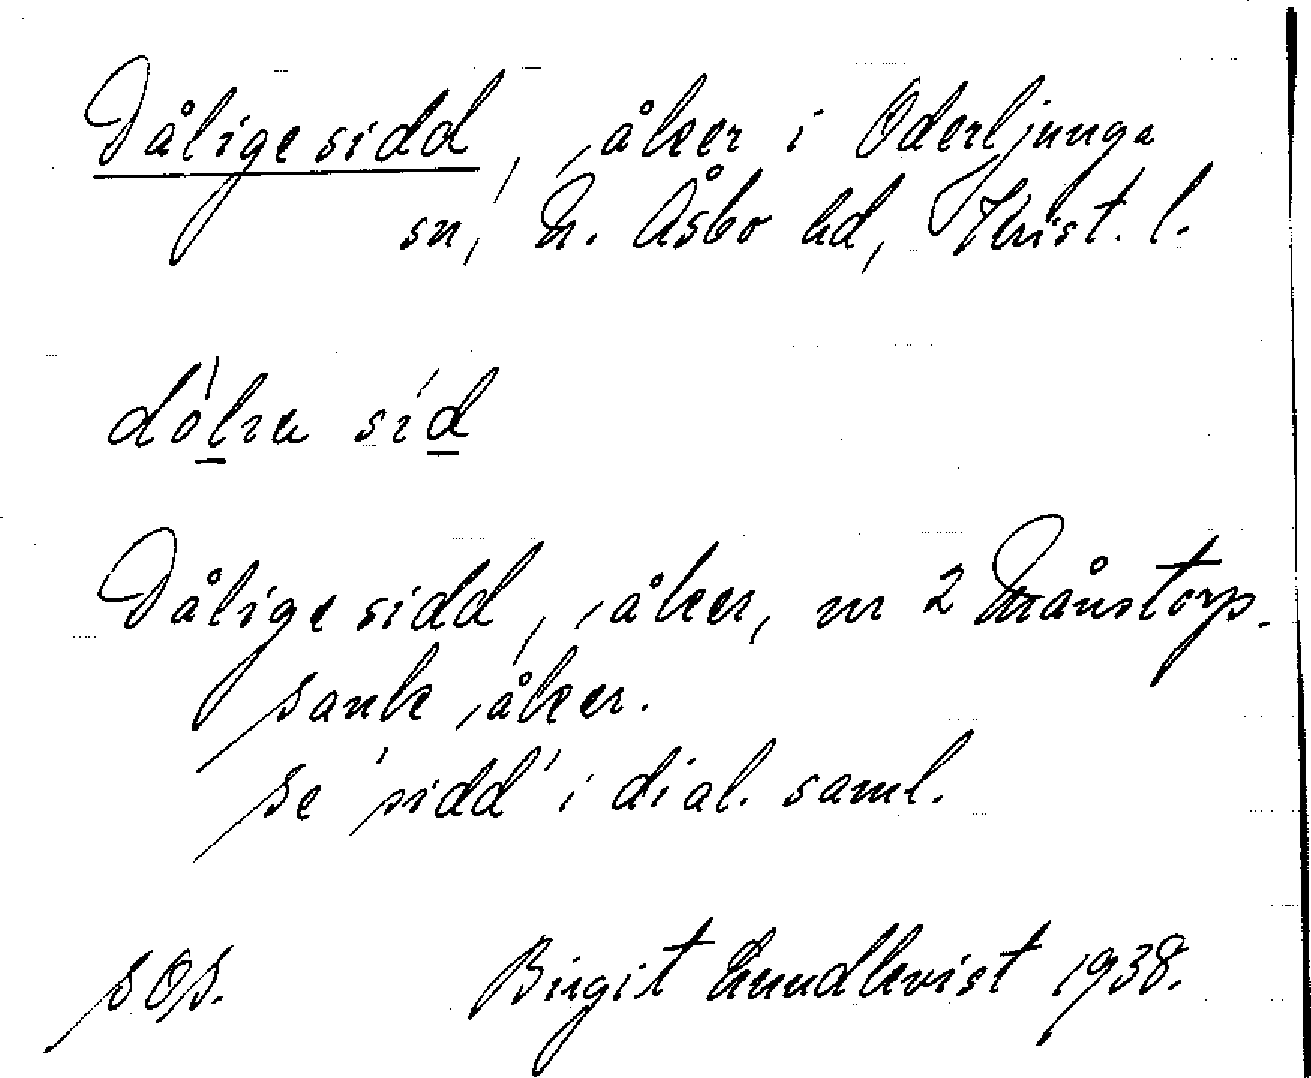 Dåligesidd, åker i Oderljunga
sn, N. Åsbo hd, Krist. l.
sid
Dåligesidd, åker, nr 2 Månstorp.
sank åker.
se 'sidd' i dial. saml.
SOS. Birgit Lundkvist 1938.